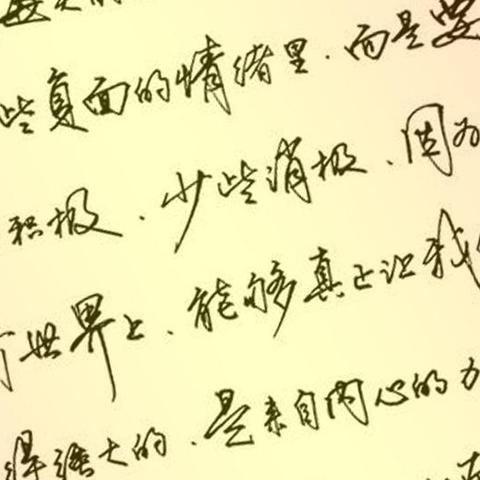 些负面的情绪里.而是要
积极.少些消极.因为
世界上.能够真正让我
得强大的.是来自内心的力